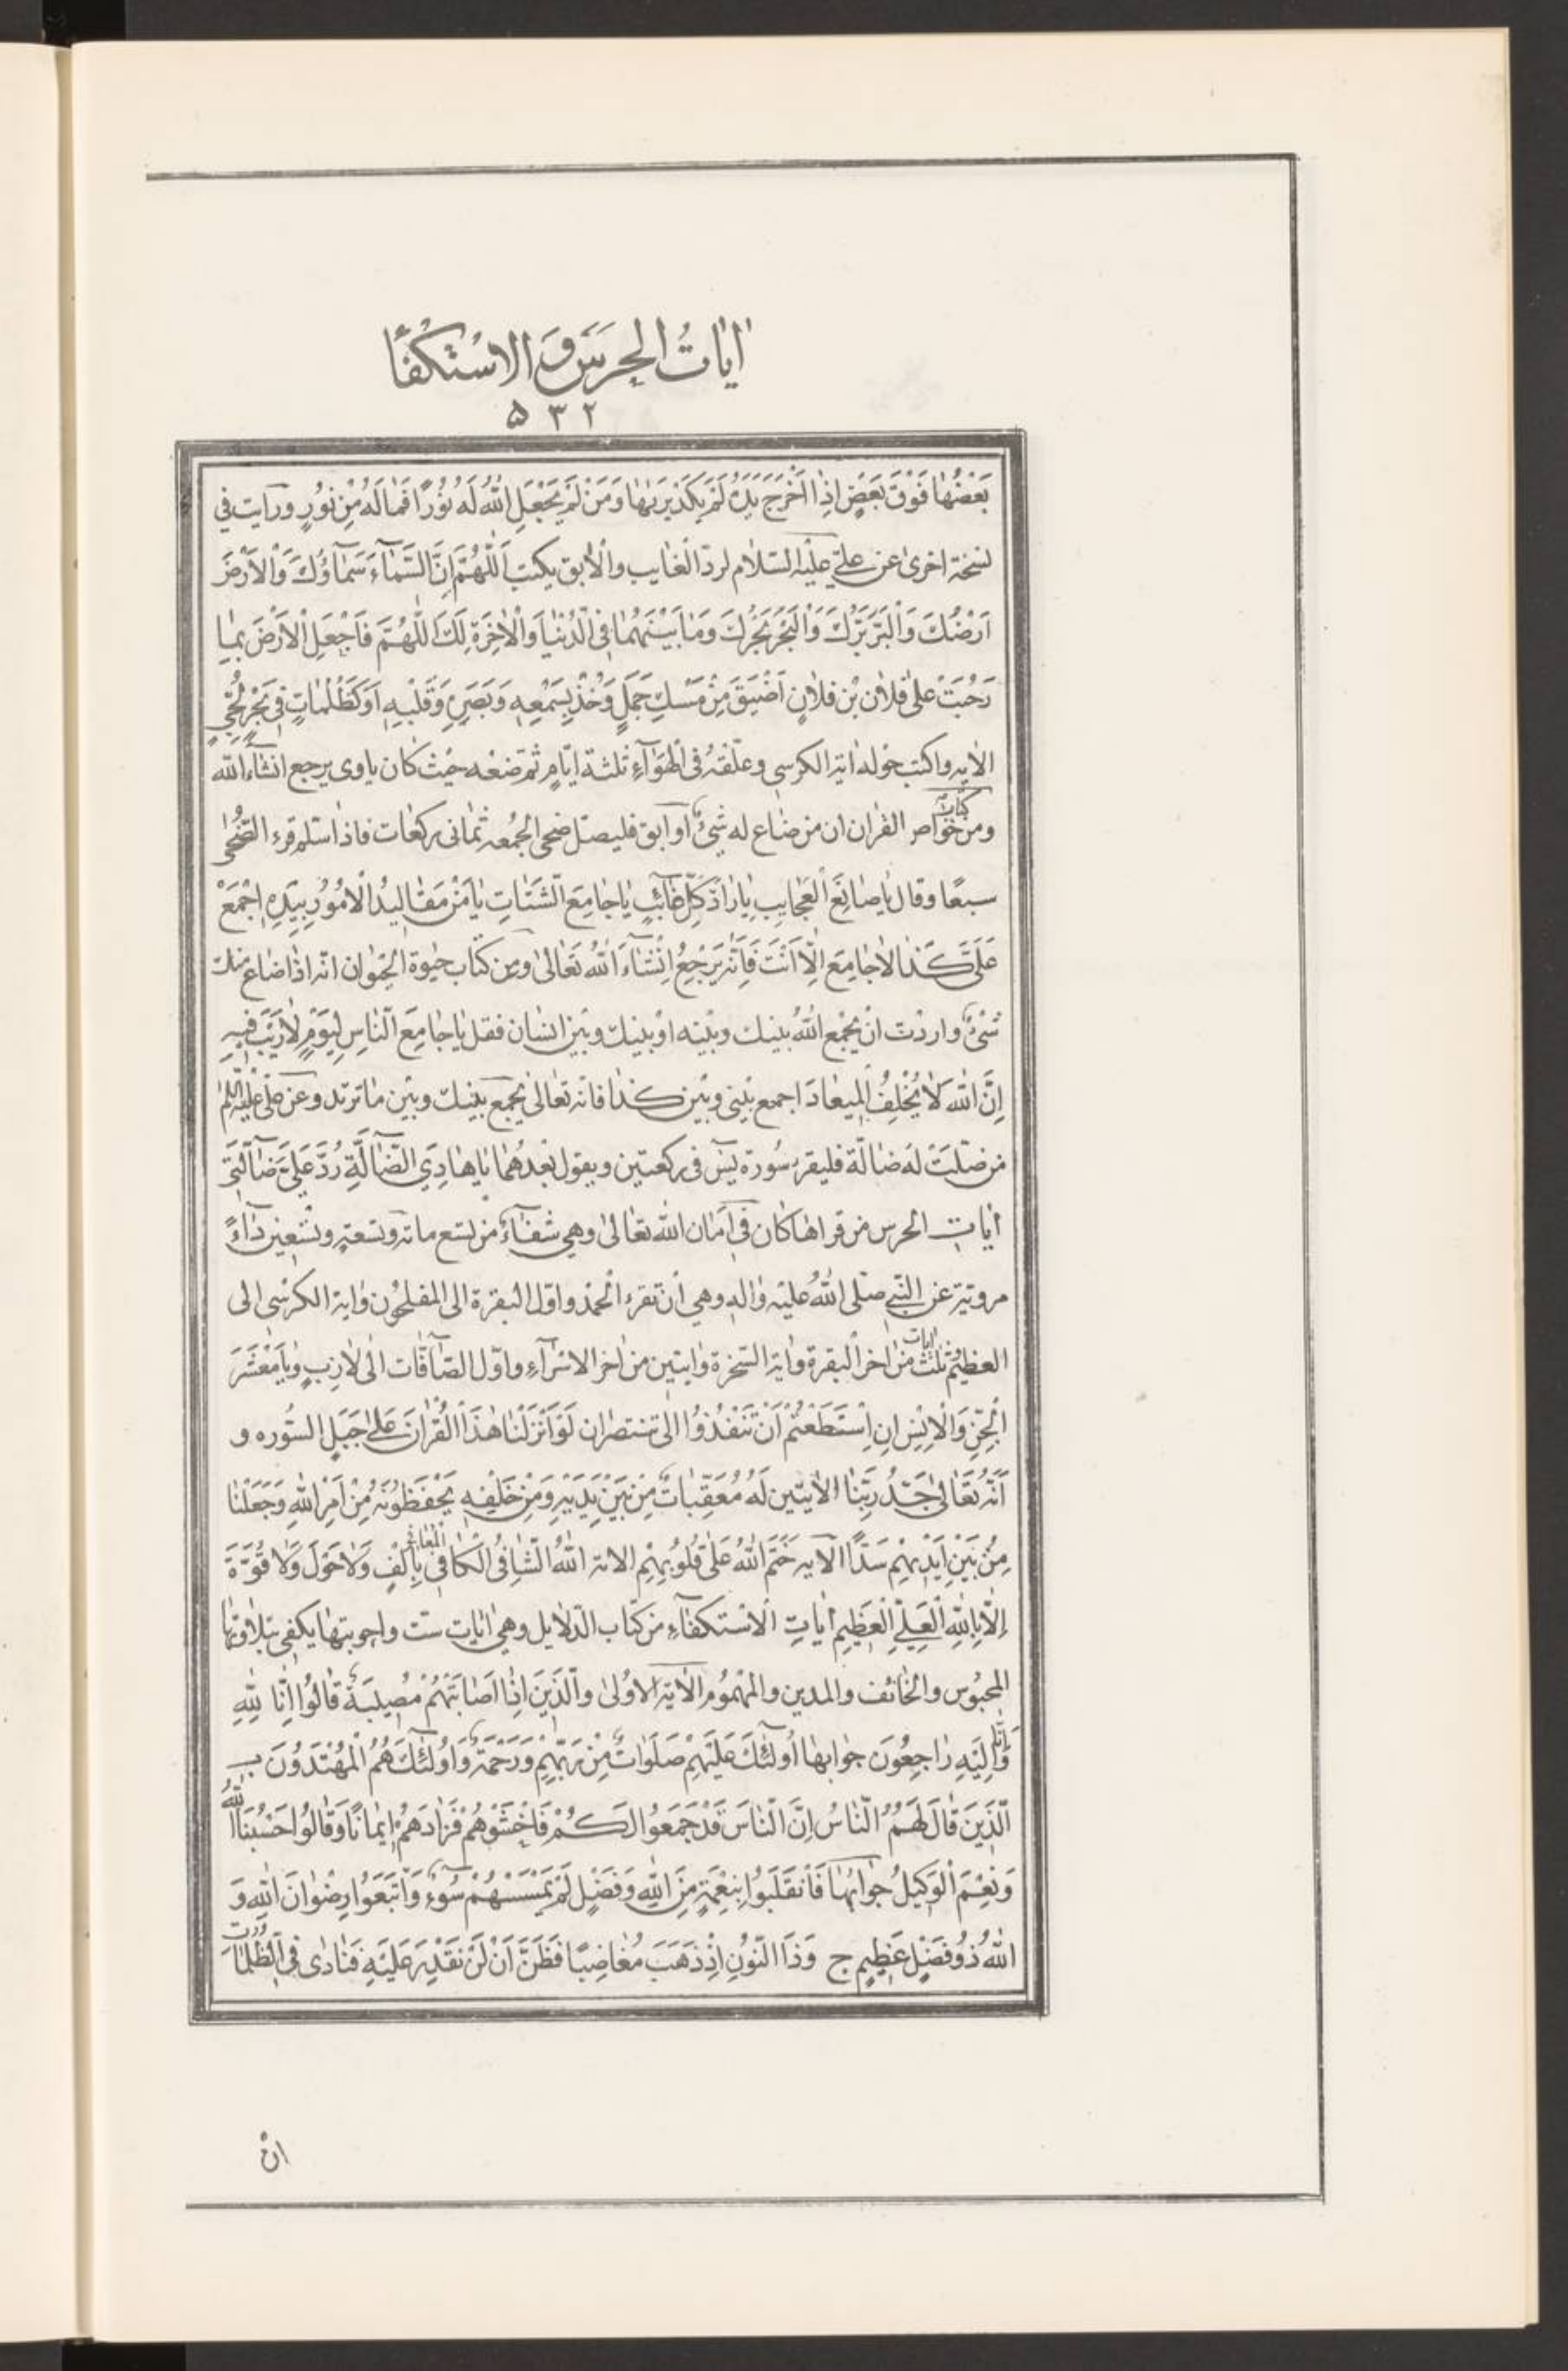 اٰيَاتُ الْحِرَسِ وَ الاسْتكْفٰٓاءُ
٥٣٢
بَعْضُهٰا فَوْقَ بَعْضٍ اِذٰا اَخْرَجَ يَدَهُ لَمْ يَكَدْ يَرٰيهٰا وَمَنْ لَمْ يَجْعَلِ اللّٰهُ لَهُ نُورًا فَمٰا لَهُ مِنْ نُورٍ ورايت في
نسخة اخرىٰ عن علىّ عليْه السّلٰام لردّ الْغٰايب والْاٰبق يكتب اَللّٰهُمَّ اِنَّ السَّمٰاۤءَ سَمٰاۤؤُكَ وَالْاَرْضَ
اَرْضُكَ وَالْبَرَّ بَرُّكَ وَالْبَحْرَ بَحْرُكَ وَمٰا بَيْنَهُمٰا فِى الدُّنْيٰا وَالْاٰخِرَةِ لَكَ اَللّٰهُمَّ فَاجْعَلِ الْاَرْضَ بِمٰا
رَحُبَتْ عَلىٰ فلاٰن بْن فلاٰنٍ اَضْيَقَ مِنْ مَسْكِ جَمَلٍ وَخُذْ بِسَمْعِهِ وَبَصَرِهِ وَقَلْبِهِ اَوْ كَظُلُمٰاتٍ فِى بَحْرٍ لُجِّيٍّ
الاٰيه واكتب حَوْله اٰية الكرسي وعلّقهُ فى الْهَوٰاۤءِ ثلثة ايّامٍ ثم ضعْه حيْث كٰان ياوى يرجع انشٰاۤءَ اللّٰه
ومن كتاب خوٰاصّ القراٰن ان من ضٰاع له شيْءٌ او اَبق فليصلّ ضحى الجُمُعه ثمٰانى ركعٰات فاذٰا سلّم قرء الضُّحٰى
سبعًا وقال يٰا صٰانِعَ الْعَجٰايِبِ يٰا رٰادَّ كُلِّ غٰاۤئِبٍ يٰا جٰامِعَ الشَّتٰاتِ يٰا مَنْ مَقٰالِيدُ الْاُمُورِ بِيَدِهِ اِجْمَعْ
عَلَىَّ كَذٰا لاٰ جٰامِعَ اِلّٰا اَنْتَ فَاِنَّه يَرْجِعُ اِنْشٰاۤءَ اللّٰهُ تَعٰالىٰ ومن كتٰاب حيٰوة الحَيَوٰان انّه اذٰا ضٰاع منك
شَىْءٌ واردْت انْ يجْمع اللّٰهُ بينك وبيْنه اوْ بينك وبيْن انسٰان فقل يٰا جٰامِعَ النّٰاسِ لِيَوْمٍ لاٰ رَيْبَ فِيهِ
اِنَّ اللّٰهَ لاٰ يُخْلِفُ الْمِيعٰادَ اجمع بيْنى وبيْن كذٰا فانّه تعٰالىٰ يجْمع بيْنك وبيْن مٰا تريد وعن علىّ عليْه السّلم
من ضلّتْ لهُ ضٰالّة فليقرء سُورة يسۤ فى ركعتين ويقول بعْدهُمٰا يٰا هٰادِيَ الضّٰاۤلَّةِ رُدَّ عَلَىَّ ضٰاۤلَّتِى
اٰيات الحرس من قراهٰا كٰان فى اَمٰان اللّٰه تعٰالىٰ وهي شفٰاۤءٌ من تسع مائة وتسعة وتسْعين دٰاۤءً
مرويّة عن النّبى صَلّى اللّٰهُ عليْه واٰله وهي اَنْ تقرء الْحمد واوّل الْبقرة الى المفلحُون واٰية الكرسْى الى
العظيم وثلٰث اٰيات من اٰخر الْبقرة واٰية السّخرة واٰيتين من اٰخر الاسْرٰاۤءِ واوّل الصّٰاۤفّات الىٰ لاٰزِبٍ وَيٰا مَعْشَرَ
الْجِنِّ وَالْاِنْسِ اِنِ اسْتَطَعْتُمْ اَنْ تَنْفُذُوا الىٰ تنتصران لَوْ اَنْزَلْنٰا هٰذَا الْقُرْاٰنَ عَلىٰ جَبَلٍ السُّوره و
اَنَّهُ تَعٰالىٰ جَدُّ رَبِّنٰا الْاٰيتين لَهُ مُعَقِّبٰاتٌ مِنْ بَيْنِ يَدَيْهِ وَمِنْ خَلْفِهِ يَحْفَظُونَهُ مِنْ اَمْرِ اللّٰهِ وَجَعَلْنٰا
مِنْ بَيْنِ اَيْدِيهِمْ سَدًّا الْاٰيه خَتَمَ اللّٰهُ عَلىٰ قُلُوبِهِمْ الاٰية اَللّٰهُ الشّٰافِى الْكٰافِى الْمُعٰافِى بِاَلْفِ وَلاٰ حَوْلَ وَلاٰ قُوَّةَ
اِلّٰا بِاللّٰهِ الْعَلِىِّ الْعَظِيمِ اٰيٰاتِ الْاسْتكفٰاۤءِ من كتٰاب الدّلاٰيل وهىَ اٰيٰات ستّ واجوبتهٰا يكفى بتلاٰوتهٰا
المحبُوس والخٰائف والمدين والمهْمُوم الاٰية الاُولىٰ والَّذِينَ اِذٰا اَصٰابَتْهُمْ مُصِيبَةٌ قٰالُوا اِنّٰا لِلّٰهِ
وَاِنّٰا اِلَيْهِ رٰاجِعُونَ جوٰابهٰا اُولٰۤئِكَ عَلَيْهِمْ صَلَوٰاتٌ مِنْ رَبِّهِمْ وَرَحْمَةٌ وَاُولٰۤئِكَ هُمُ الْمُهْتَدُونَ بـ
الَّذِينَ قٰالَ لَهُمُ النّٰاسُ اِنَّ النّٰاسَ قَدْ جَمَعُوا لَكُمْ فَاخْشَوْهُمْ فَزٰادَهُمْ اِيمٰانًا وَقٰالُوا حَسْبُنَا اللّٰهُ
وَنِعْمَ الْوَكِيلُ جوٰابُهٰا فَانْقَلَبُوا بِنِعْمَةٍ مِنَ اللّٰهِ وَفَضْلٍ لَمْ يَمْسَسْهُمْ سُوۤءٌ وَاتَّبَعُوا رِضْوٰانَ اللّٰهِ وَ
اللّٰهُ ذُو فَضْلٍ عَظِيمٍ ج وَذَا النُّونِ اِذْ ذَهَبَ مُغٰاضِبًا فَظَنَّ اَنْ لَنْ نَقْدِرَ عَلَيْهِ فَنٰادىٰ فِى الظُّلُمٰاتِ
انْ